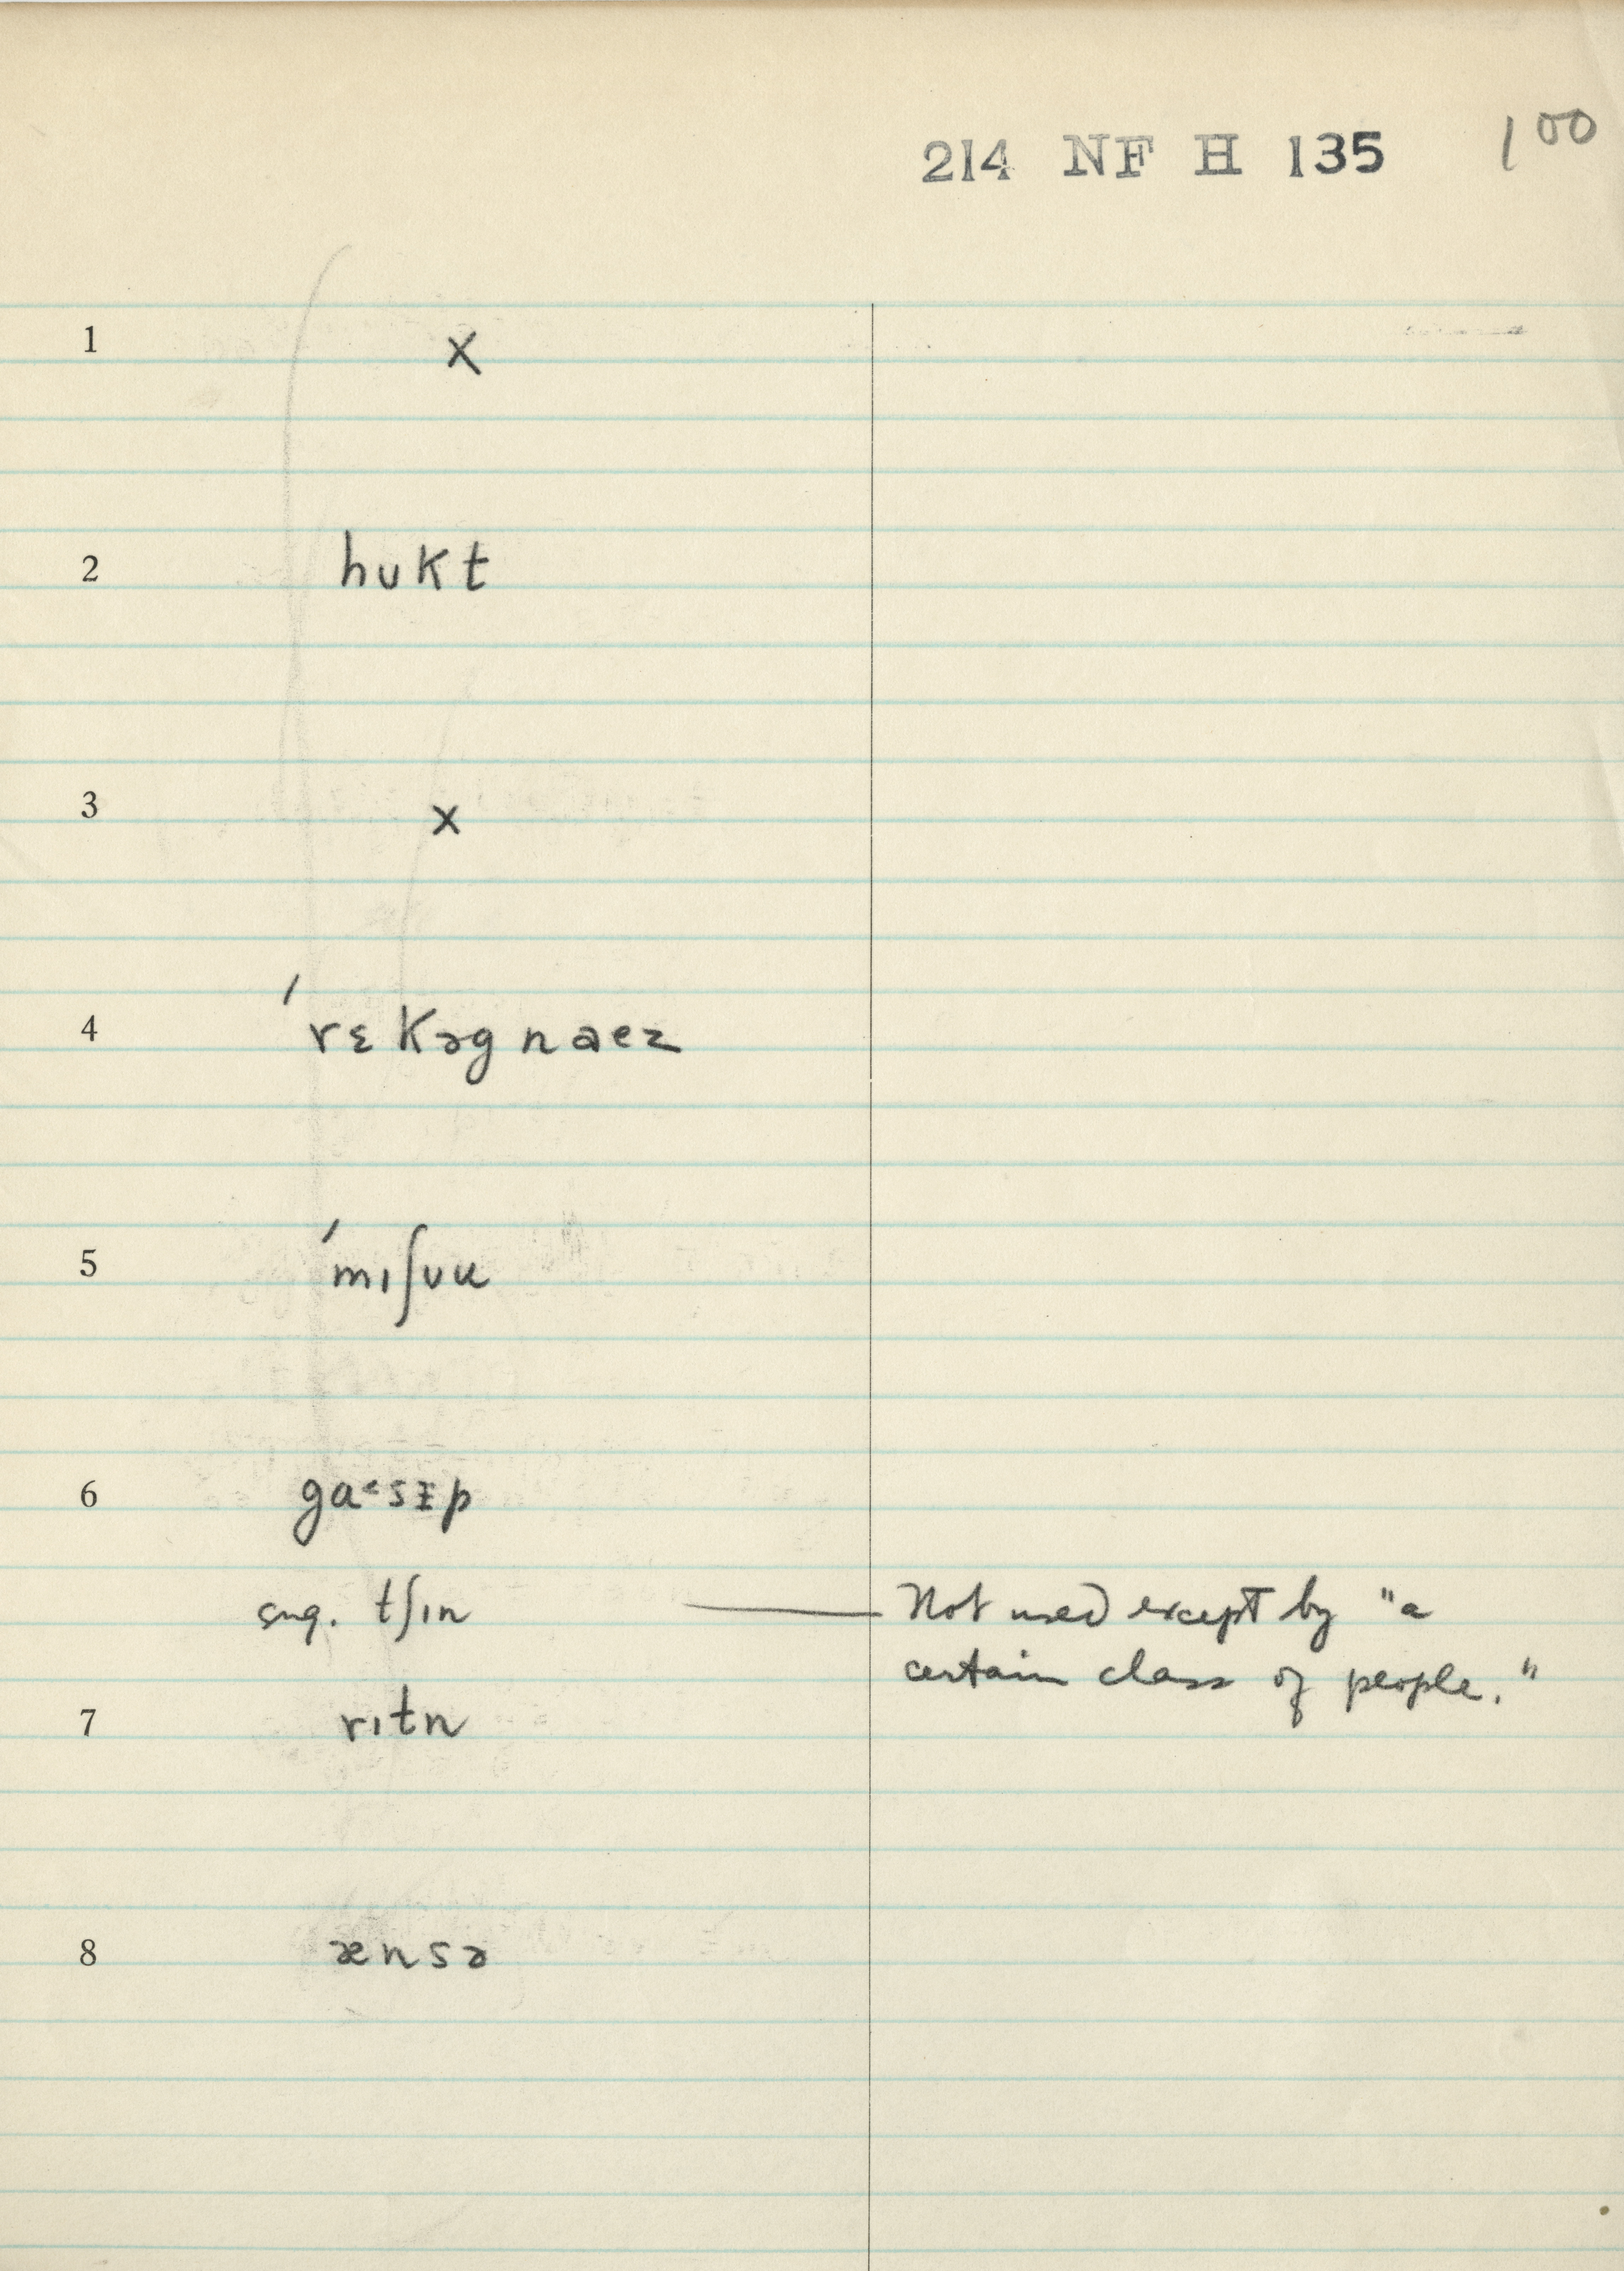 214 NF H 135 100
1 x
2 hʊkt
3 x
4 ˈrɛkəgnaez
5 ˈmɪʃʊu
6 ga˂sɪ̵p
sug. tʃɪn — Not used except by "a
certain class of people."
7 rɪtn
8 ænsə